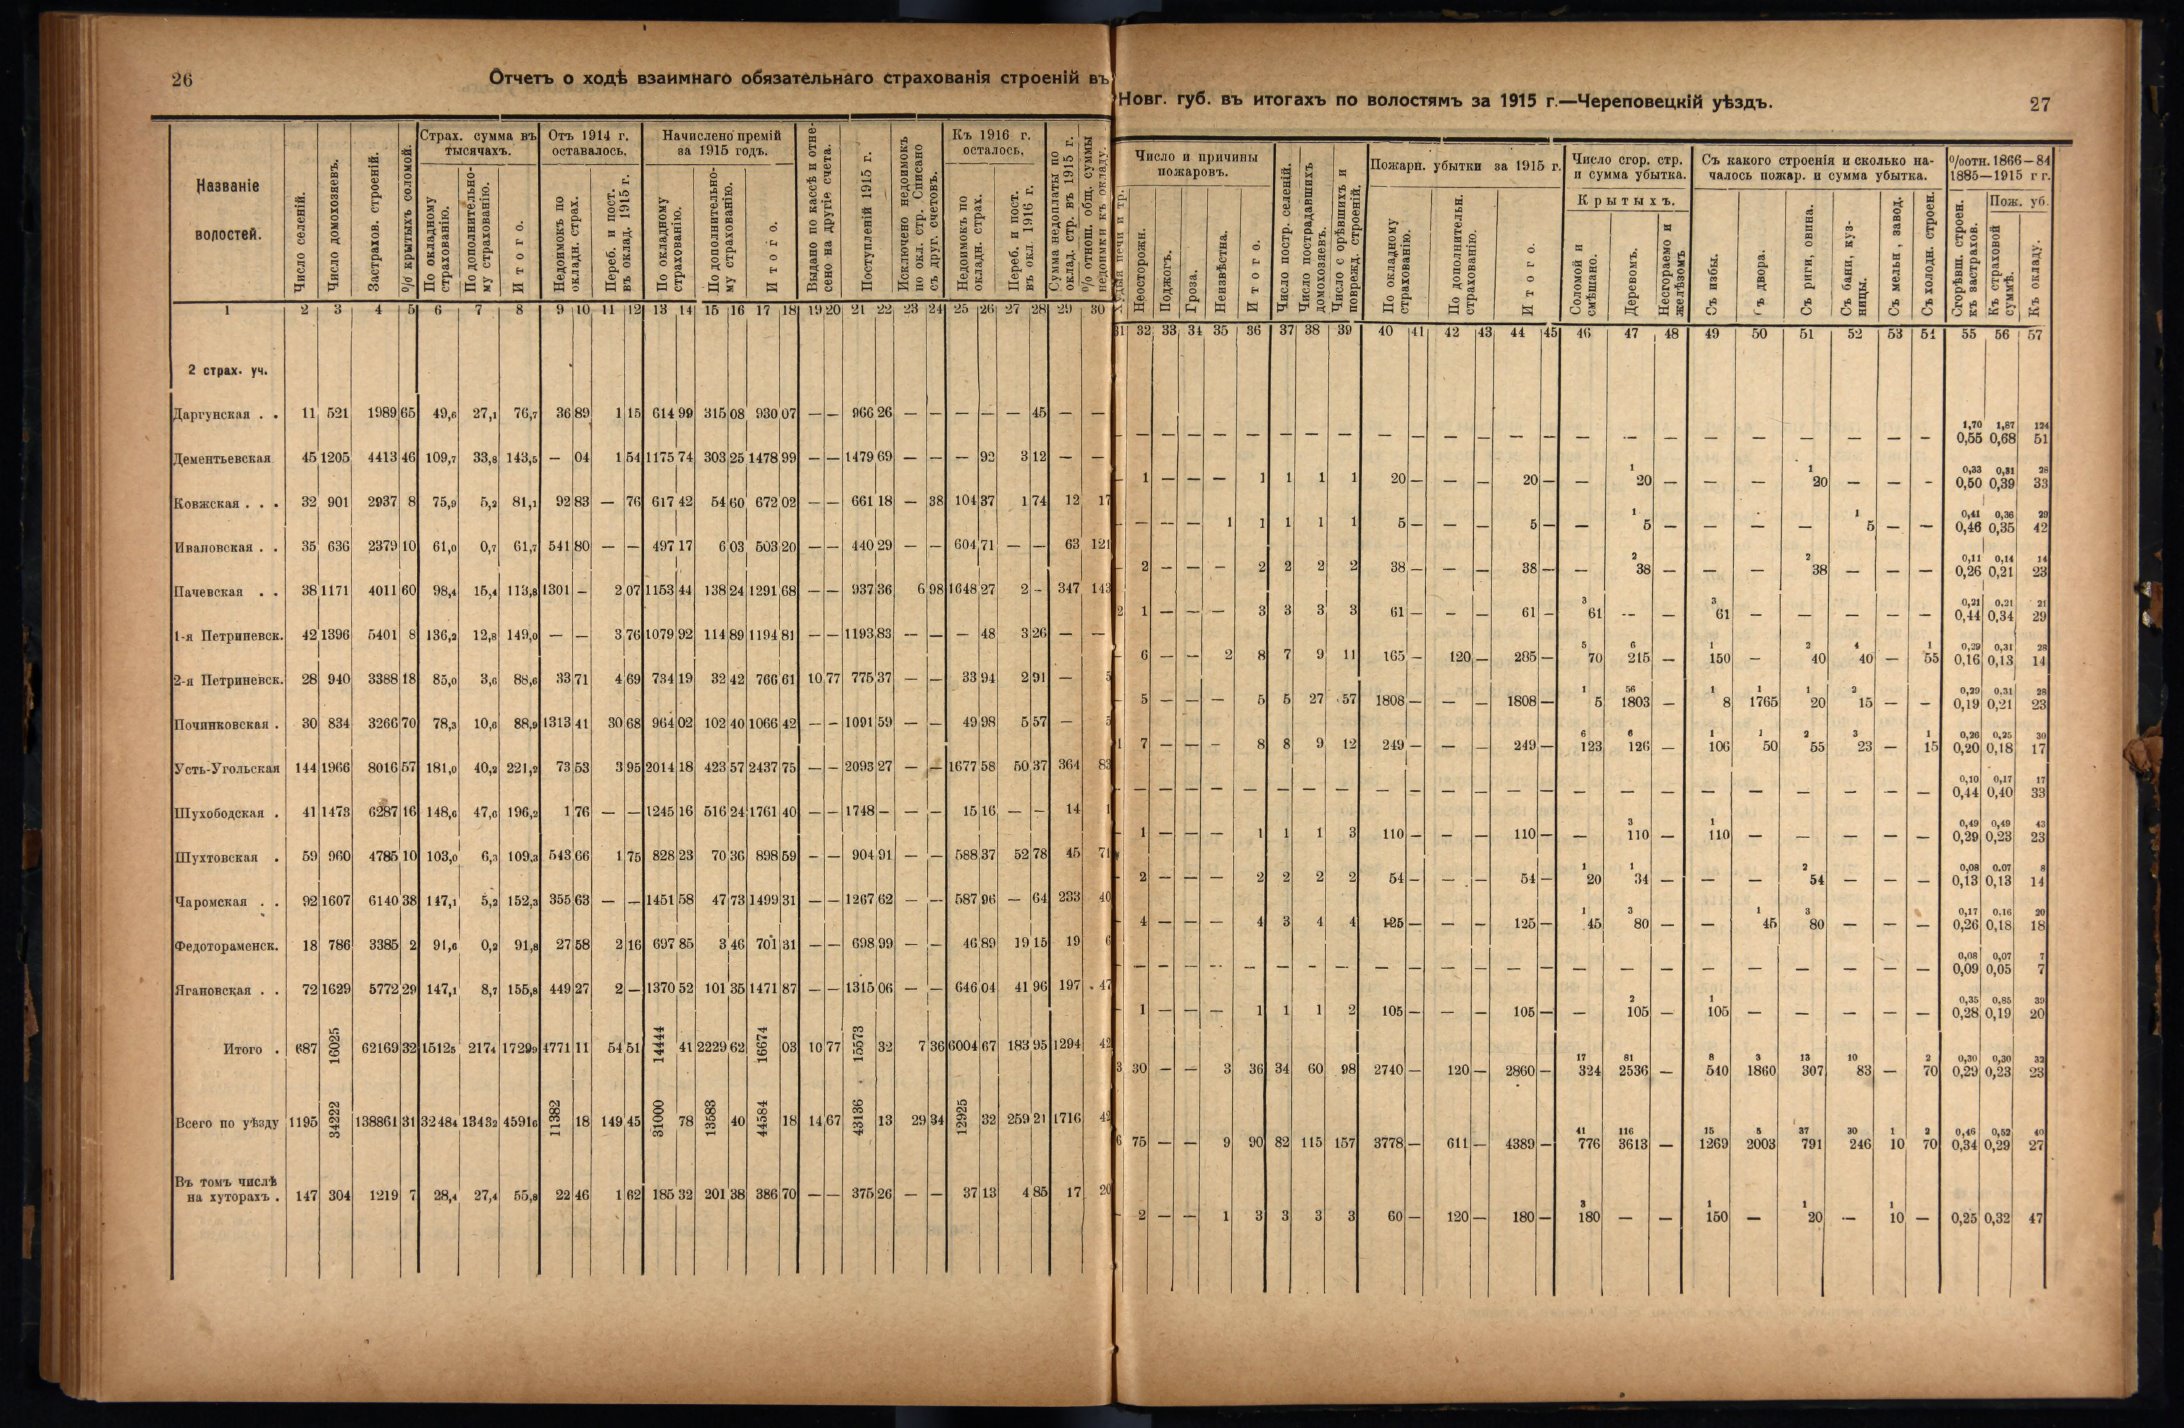 26
Отчетъ о ходѣ взаимнаго обязательнаго страхованія строеній въ
Названіе волостей.
Число селеній.
Число домохозяевъ.
Застрахов. строеній.
% крытыхъ соломой.
Страх. сумма въ тысячахъ.
По окладному страхованію.
По дополнительно- му страхованію.
Итого.
Отъ 1914 г. оставалось.
Недоимокъ по окладн. страх.
Переб. и пост. въ оклад. 1915 г.
Начислено премій за 1915 годъ.
По окладному страхованію.
По дополнительно- му страхованію.
Итого.
Выдано по кассѣ и отне- сено на другіе счета.
Поступленій 1915 г.
Исключено недоимокъ по окл. стр. Списано съ друг. счетовъ.
Къ 1916 г. осталось.
Недоимокъ по окладн. страх.
Переб. и пост. въ окл. 1916 г.
Сумма недоплаты по оклад. стр. въ 1915 г.
% отнош. общ. суммы недоимки къ окладу.
1 2 3 4 5 6 7 8 9 10 11 12 13 14 15 16 17 18 19 20 21 22 23 24 25 26 27 28 29 30
2 страх. уч.
Даргунская . . 11 521 1989 65 49,6 27,1 76,7 36 89 1 15 614 99 315 08 930 07 — — 966 26 — — — — — 45 — —
Дементьевская 45 1205 4413 46 109,7 33,8 143,5 — 04 1 54 1175 74 303 25 1478 99 — — 1479 69 — — — 92 3 12 — —
Ковжская . . . 32 901 2937 8 75,9 5,2 81,1 92 83 — 76 617 42 54 60 672 02 — — 661 18 — 38 104 37 1 74 12 17
Ивановская . . 35 636 2379 10 61,0 0,7 61,7 541 80 — — 497 17 6 03 503 20 — — 440 29 — — 604 71 — — 63 121
Пачевская . . 38 1171 4011 60 98,4 15,4 113,8 1301 — 2 07 1153 44 138 24 1291 68 — — 937 36 6 98 1648 27 2 — 347 143
1-я Петриневск. 42 1396 5401 8 136,2 12,8 149,0 — — 3 76 1079 92 114 89 1194 81 — — 1193 83 — — — 48 3 26 — —
2-я Петриневск. 28 940 3388 18 85,0 3,6 88,6 33 71 4 69 734 19 32 42 766 61 10 77 775 37 — — 33 94 2 91 — 5
Починковская . 30 834 3266 70 78,3 10,6 88,9 1313 41 30 68 964 02 102 40 1066 42 — — 1091 59 — — 49 98 5 57 — 5
Усть-Угольская 144 1966 8016 57 181,0 40,2 221,2 73 53 3 95 2014 18 423 57 2437 75 — — 2093 27 — — 1677 58 50 37 364 83
Шухободская . 41 1473 6287 16 148,6 47,6 196,2 1 76 — — 1245 16 516 24 1761 40 — — 1748 — — — 15 16 — — 14 1
Шухтовская . 59 960 4785 10 103,0 6,3 109,3 543 66 1 75 828 23 70 36 898 59 — — 904 91 — — 588 37 52 78 45 71
Чаромская . . 92 1607 6140 38 147,1 5,2 152,3 355 63 — — 1451 58 47 73 1499 31 — — 1267 62 — — 587 96 — 64 233 40
Федотораменск. 18 786 3385 2 91,6 0,2 91,8 27 58 2 16 697 85 3 46 701 31 — — 698 99 — — 46 89 19 15 19 6
Ягановская . . 72 1629 5772 29 147,1 8,7 155,8 449 27 2 — 1370 52 101 35 1471 87 — — 1315 06 — — 646 04 41 96 197 47
Итого . 687 16025 62169 32 15125 2174 17299 4771 11 54 51 14444 41 2229 62 16674 03 10 77 15573 32 7 36 6004 67 183 95 1294 42
Всего по уѣзду 1195 34222 138861 31 32484 13432 45916 11382 18 149 45 31000 78 13583 40 44584 18 14 67 43136 13 29 34 12925 32 259 21 1716 42
Въ томъ числѣ
на хуторахъ . 147 304 1219 7 28,4 27,4 55,8 22 46 1 62 185 32 201 38 386 70 — — 375 26 — — 37 13 4 85 17 20
Новг. губ. въ итогахъ по волостямъ за 1915 г.—Череповецкій уѣздъ.
27
Число и причины пожаровъ.
печи и тр.
Неосторожн.
Поджогъ.
Гроза.
Неизвѣстна.
Итого.
Число постр. селеній.
Число пострадавшихъ домохозяевъ.
Число сгорѣвшихъ и поврежд. строеній.
Пожарн. убытки за 1915 г.
По окладному страхованію.
По дополнительн. страхованію.
Итого.
Число сгор. стр. и сумма убытка.
Крытыхъ.
Соломой и смѣшано.
Деревомъ.
Несгораемо и желѣзомъ
Съ какого строенія и сколько на- чалось пожар. и сумма убытка.
Съ избы.
Съ двора.
Съ риги, овина.
Съ бани, куз- ницы.
Съ мельн, завод.
Съ холодн. строен.
%отн. 1866—84 1885—1915 гг.
Сгорѣвш. строен. къ застрахов.
Пож. уб.
Къ страховой суммѣ.
Къ окладу.
31 32 33 34 35 36 37 38 39 40 41 42 43 44 45 46 47 48 49 50 51 52 53 54 55 56 57
1,70 1,87 124
— — — — — — — — — — — — — — — — — — — — — — — — 0,55 0,68 51
1 1 0,33 0,31 28
— 1 — — — 1 1 1 1 20 — — — 20 — — 20 — — — 20 — — - 0,50 0,39 33
1 1 0,41 0,36 29
— — — — 1 1 1 1 1 5 — — — 5 — — 5 — — — — 5 — — 0,46 0,35 42
2 2 0,11 0,14 14
— 2 — — — 2 2 2 2 38 — — — 38 — — 38 — — — 38 — — — 0,26 0,21 23
3 3 0,21 0,21 21
2 1 — — — 3 3 3 3 61 — — — 61 — 61 — — 61 — — — — — 0,44 0,34 29
5 6 1 2 4 1 0,29 0,31 28
— 6 — — 2 8 7 9 11 165 — 120 — 285 — 70 215 — 150 — 40 40 — 55 0,16 0,13 14
1 56 1 1 1 2 0,29 0,31 28
— 5 — — — 5 5 27 57 1808 — — — 1808 — 5 1803 — 8 1765 20 15 — — 0,19 0,21 23
6 6 1 1 2 3 1 0,26 0,25 30
1 7 — — — 8 8 9 12 249 — — — 249 — 123 126 — 106 50 55 23 — 15 0,20 0,18 17
0,10 0,17 17
— — — — — — — — — — — — — — — — — — — — — — — — 0,44 0,40 33
3 1 0,49 0,49 43
— 1 — — — 1 1 1 3 110 — — — 110 — — 110 — 110 — — — — — 0,29 0,23 23
1 1 2 0,08 0.07 8
— 2 — — — 2 2 2 2 54 — — — 54 — 20 34 — — — 54 — — — 0,13 0,13 14
1 3 1 3 0,17 0,16 20
— 4 — — — 4 3 4 4 125 — — — 125 — 45 80 — — 45 80 — — — 0,26 0,18 18
0,08 0,07 7
— — — — — — — — — — — — — — — — — — — — — — — — 0,09 0,05 7
2 1 0,35 0,85 39
— 1 — — — 1 1 1 2 105 — — — 105 — — 105 — 105 — — — — — 0,28 0,19 20
17 81 8 3 13 10 2 0,30 0,30 32
3 30 — — 3 36 34 60 98 2740 — 120 — 2860 — 324 2536 — 540 1860 307 83 — 70 0,29 0,23 23
41 116 15 5 37 30 1 2 0,46 0,52 40
6 75 — — 9 90 82 115 157 3778 — 611 — 4389 — 776 3613 — 1269 2003 791 246 10 70 0,34 0,29 27
3 1 1 1
— 2 — — 1 3 3 3 3 60 — 120 — 180 — 180 — — 150 — 20 — 10 — 0,25 0,32 47